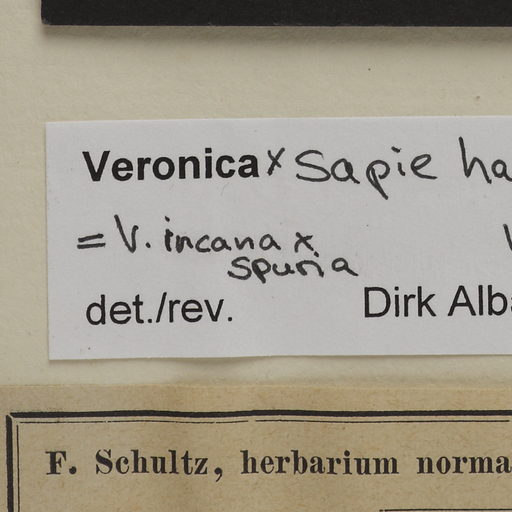 Veronica x Sapieha
= V. incana x
spuria
det./rev. Dirk Alba
F. Schultz, herbarium norma